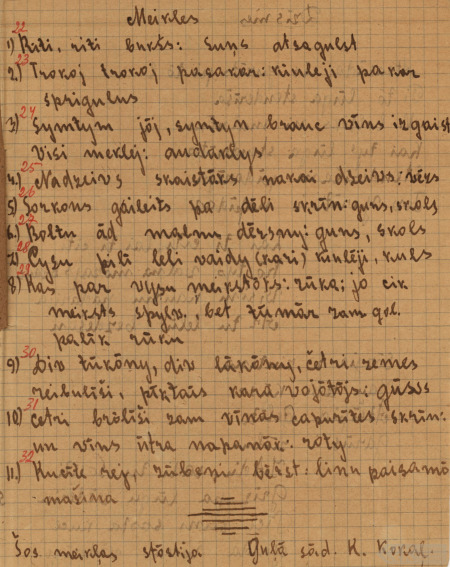 Meikles
22
1) Riti, riti bukšs: suņs atsagulst
23
2) Trokoj trokoj pasakar: kiuleji pakar
sprigulus
24
3) Symtym jōj, symtyn brauc vīns izgaist
visi meklej: audaklys
25
4) Nadzeivs skaistōks nakai dzeivs: vēss
26
5) Sorkons gaileits pa dēli skrīn: guns, skols
27
6) Boltu ād malnu dērsnej: guns, skols
28
7) Cysu pilī leli vaidy (kari) kiulēji, kuls
29
8) Kas par vysu meikstōks: rūka; jo cik
meiksts spylvs, bet, tūmār zam gol.
palīk rūku
30
9) Div tūkōny, div lākōmy, četri zemes
reibulīši, pīktais kara vojōtōjs: gūsvs
31
10) Četri brōlīši zam vīnas capurītes skrīn:
un vīns ūtra napanōk: roty
32
11) Kucīte rej, zūbeņi bērst: linu paisamō
mašina
Šos meikļas stōstīja Guļā sād. K. Kokaļ.